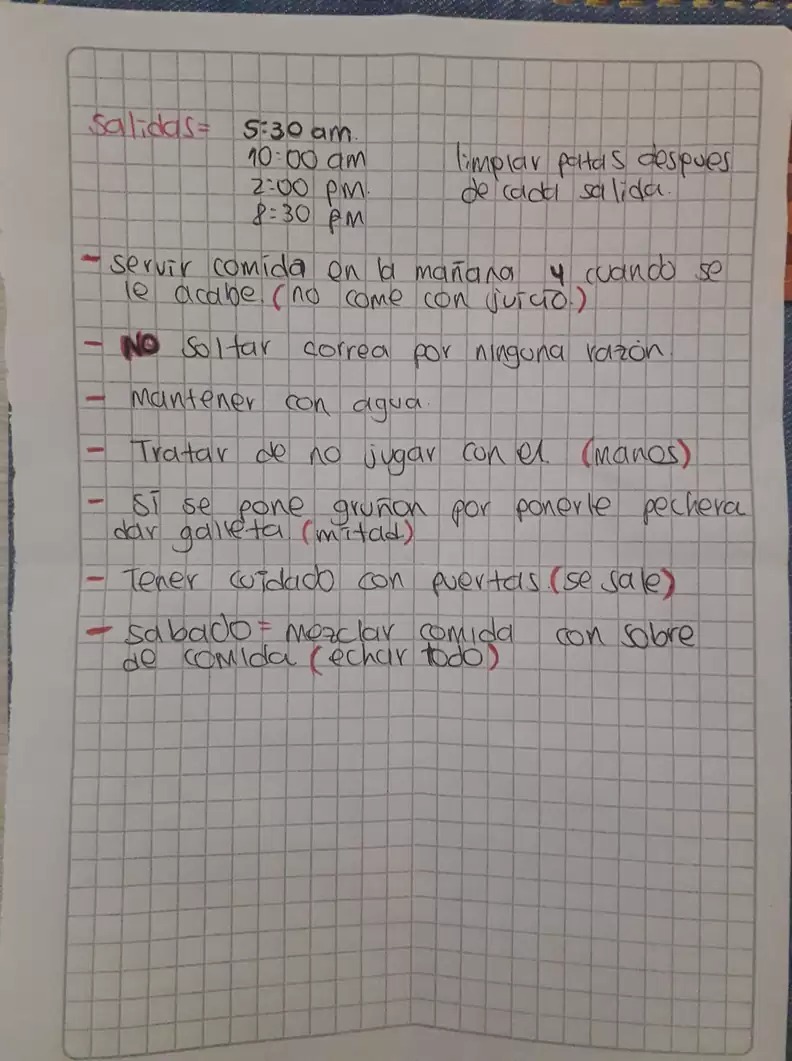 salidas= 5:30 am.
10:00 am
2:00 pm.
8:30 pm
limpiar patas despues
de cada salida.
- servir comida en la mañana y cuando se
le acabe (no come con juicio.)
- NO soltar correa por ninguna razón.
- Mantener con agua.
- Tratar de no jugar con el (manos)
- Si se pone gruñon por ponerle pechera
dar galleta (mitad)
- Tener cuidado con puertas (se sale)
- sabado = Mezclar comida con sobre
de comida (echar todo)